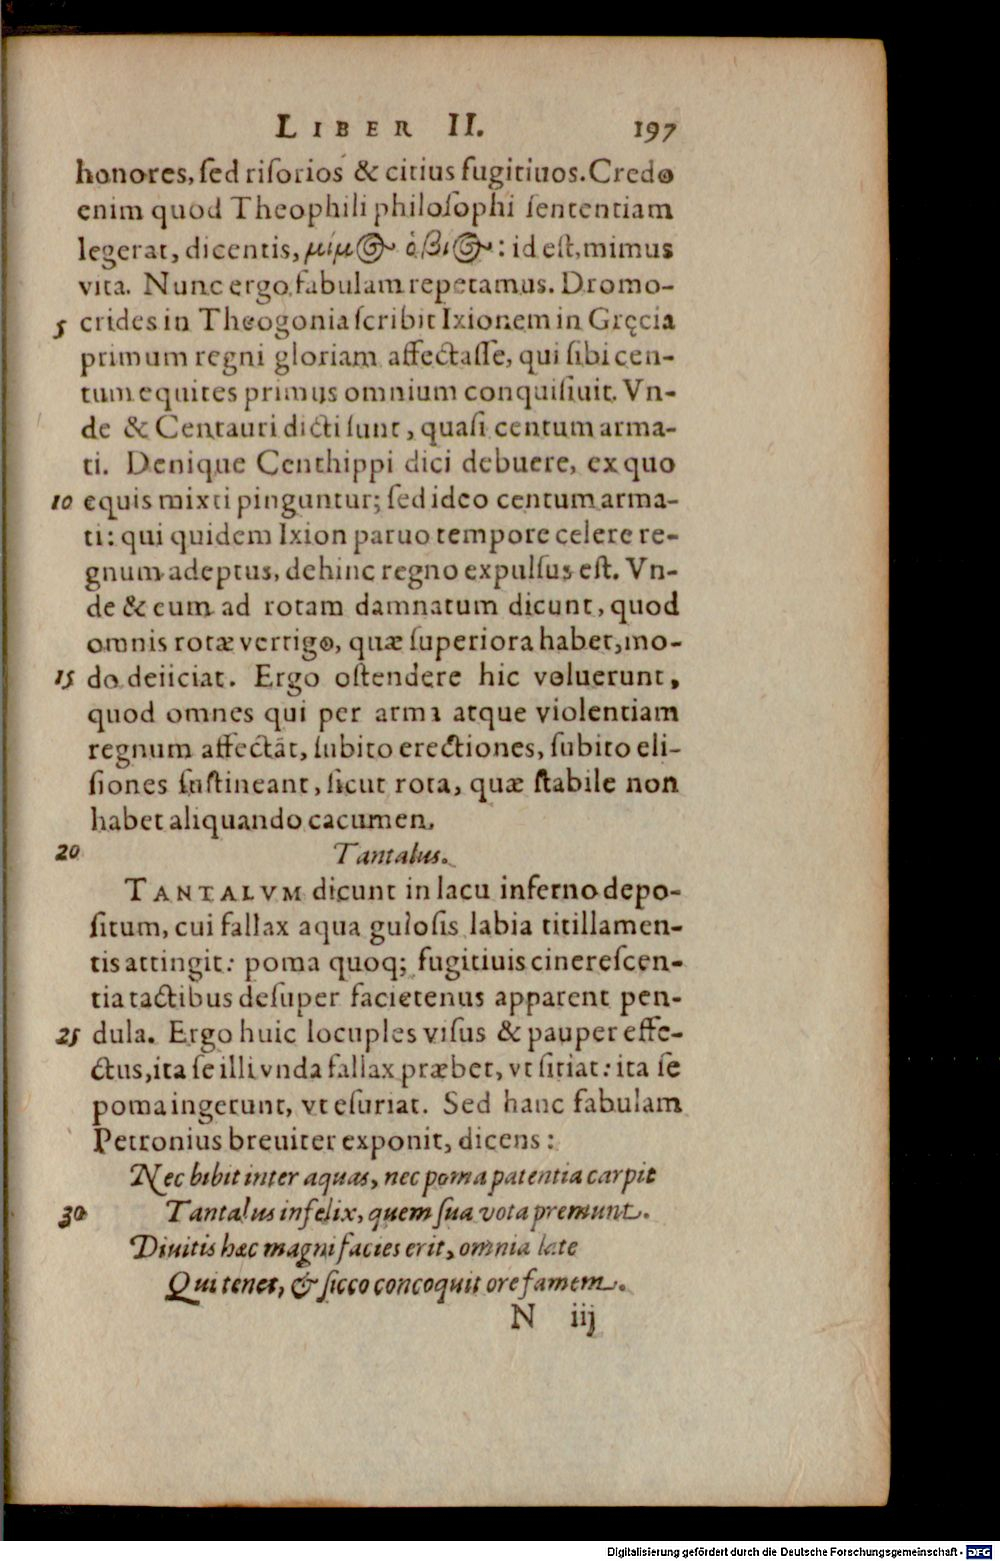 LIBER II. 197
honores, sed risorios & citius fugitiuos. Credo
enim quod Theophili philosophi sententiam
legerat, dicentis, μίμος ὁ βιος: id est, mimus
vita. Nunc ergo fabulam repetamus. Dromo-
5 crides in Theogonia scribit Ixionem in Gręcia
primum regni gloriam affectasse, qui sibi cen-
tum equites primus omnium conquisiuit. Vn-
de & Centauri dicti sunt, quasi centum arma-
ti. Denique Centhippi dici debuere, ex quo
10 equis mixti pinguntur; sed ideo centum arma-
ti: qui quidem Ixion paruo tempore celere re-
gnum adeptus, dehinc regno expulsus est. Vn-
de & eum ad rotam damnatum dicunt, quod
omnis rotæ vertigo, quæ superiora habet, mo-
15 do deiiciat. Ergo ostendere hic voluerunt,
quod omnes qui per arma atque violentiam
regnum affectãt, subito erectiones, subito eli-
siones sustineant, sicut rota, quæ stabile non
habet aliquando cacumen.
20 Tantalus.
TANTALVM dicunt in lacu inferno depo-
situm, cui fallax aqua gulosis labia titillamen-
tis attingit: poma quoq; fugitiuis cinerescen-
tia tactibus desuper facietenus apparent pen-
25 dula. Ergo huic locuples visus & pauper effe-
ctus, ita se illi vnda fallax præbet, vt sitiat: ita se
poma ingerunt, vt esuriat. Sed hanc fabulam
Petronius breuiter exponit, dicens:
Nec bibit inter aquas, nec poma patentia carpit
30 Tantalus infelix, quem sua vota premunt.
Diuitis hæc magni facies erit, omnia late
Qui tenet, & sicco concoquit ore famem.
N iij
Digitalisierung gefördert durch die Deutsche Forschungsgemeinschaft - DFG